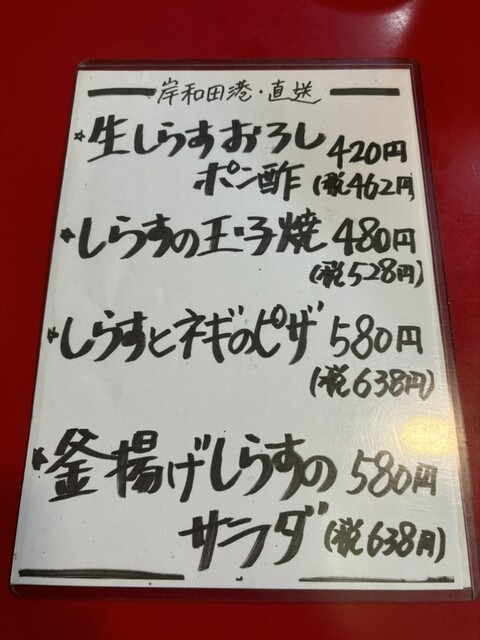 岸和田港・直送
★生しらすおろし 420円
ポン酢 (税462円
★しらすの玉子焼 480円
(税528円)
★しらすとネギのピザ 580円
(税638円)
★釜揚げしらすの 580円
サラダ (税638円)